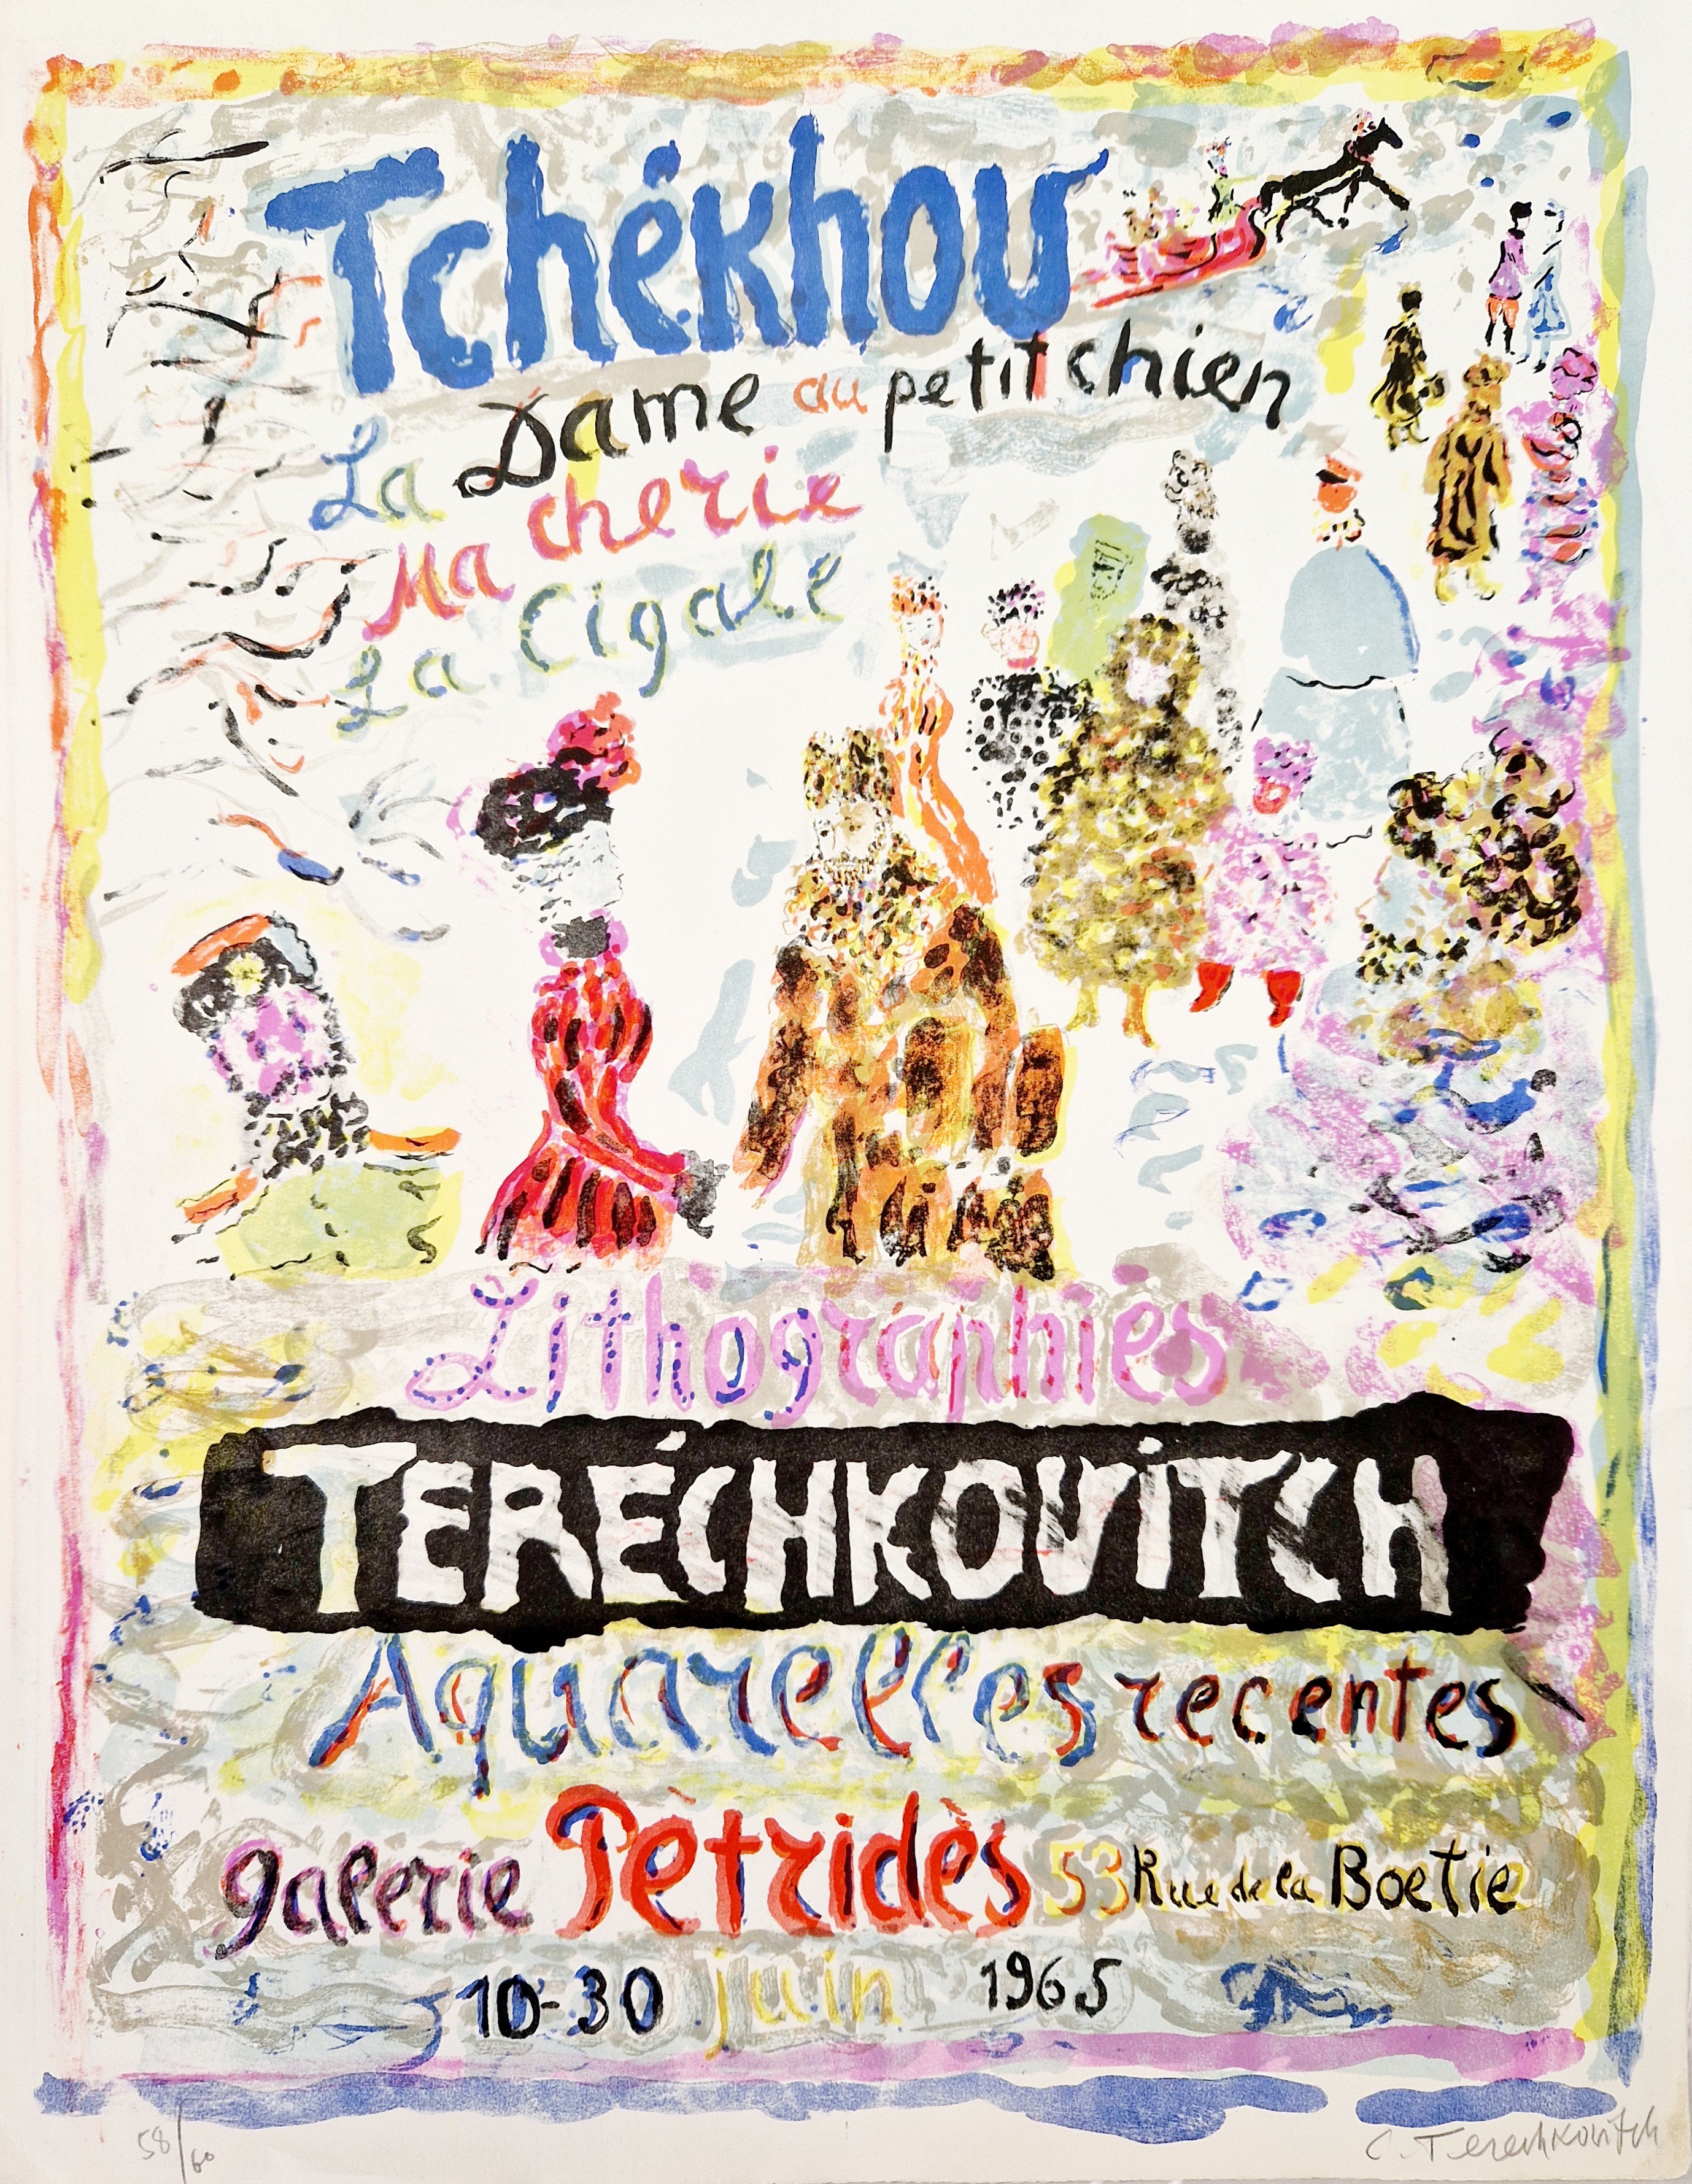 Tchékhov
La Dame au petit chien
Ma cherie
La Cigale
Lithographies
TERÉCHKOViTCH
Aquarelles recentes
galerie Pètridès 53 Rue de la Boetie
10-30 juin 1965
58/60
C. Terechkovitch